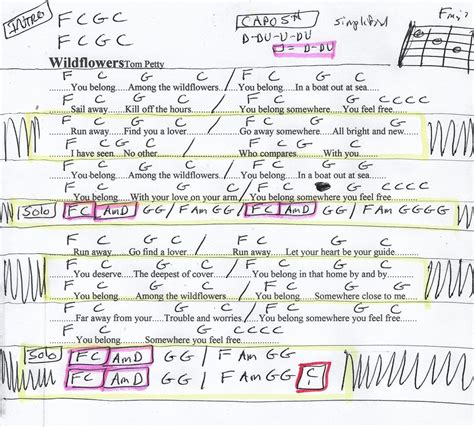 INTRO F C G C CAPO 5th simplified Fmaj7
F C G C D-DU-U-DU
= D-DU
Wildflowers Tom Petty
F C G C / F C G C
.....You belong.....Among the wildflowers.....You belong.....In a boat out at sea.....
F C G C / F C G CCCC
.....Sail away.....Kill off the hours.....You belong somewhere.....You feel free.....
F C G C / F C G C
.....Run away.....Find you a lover.....Go away somewhere.....All bright and new.....
F C G C / F C G C
.....I have seen.....No other.....Who compares.....With you.....
F C G C / F C G C
.....You belong.....Among the wildflowers.....You belong.....In a boat out at sea.....
F C G C / F C G CCCC
.....You belong.....With your love on your arm.....You belong somewhere you feel free.....
Solo F C Am D G G / F Am G G / F C Am D G G / F Am G G G G
F C G C / F C G C
.....Run away.....Go find a lover.....Run away.....Let your heart be your guide.....
F C G C / F C G C
.....You deserve.....The deepest of cover.....You belong in that home by and by.....
F C G C / F C G C
.....You belong.....Among the wildflowers.....You belong.....Somewhere close to me.....
F C G C / F C G C
.....Far away from your.....Trouble and worries.....You belong somewhere you feel free.....
F C G C
.....You belong.....Somewhere you feel free.....
Solo F C Am D G G / F Am G G
F C Am D G G / F Am G G C